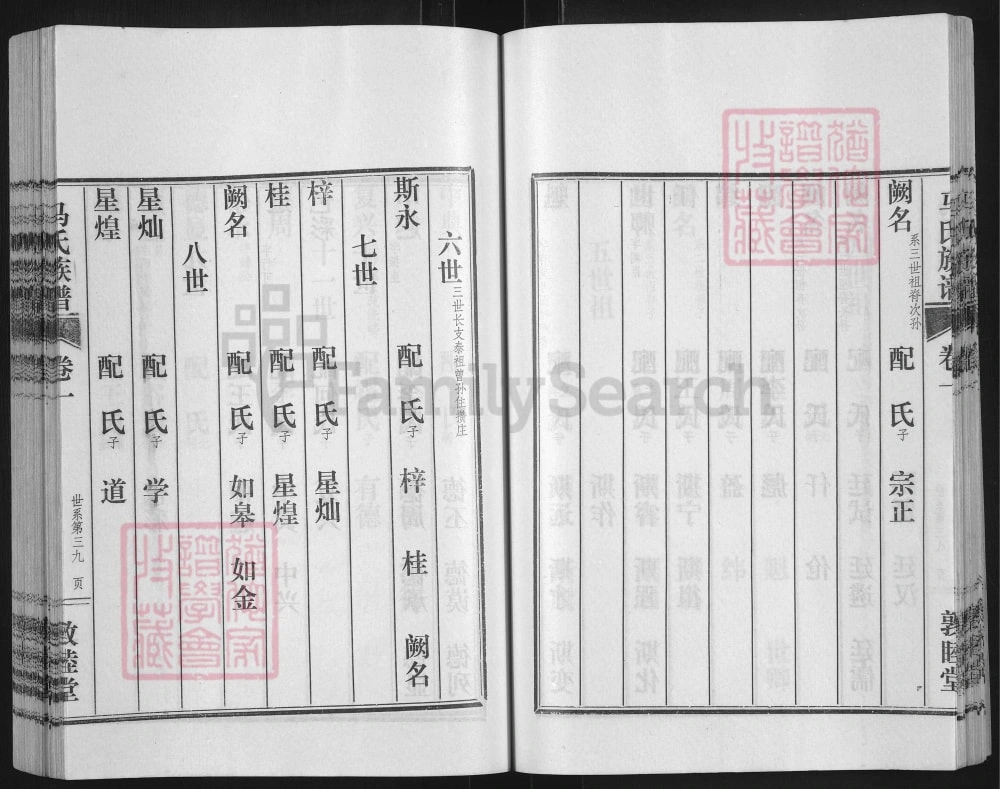 马氏族谱
卷一
敦睦堂
阙名 系三世祖脊次孙 配 氏子 宗正
六世 三世长支泰祖曾孙住张庄
斯永 配 氏子 梓 桂 阙名
七世
梓 配 氏子 星灿
桂 配 氏子 星煌
阙名 配 氏子 如皋 如金
八世
星灿 配 氏子 学
星煌 配 氏子 道
马氏族谱
卷一
世系第三九 页
敦睦堂
FamilySearch